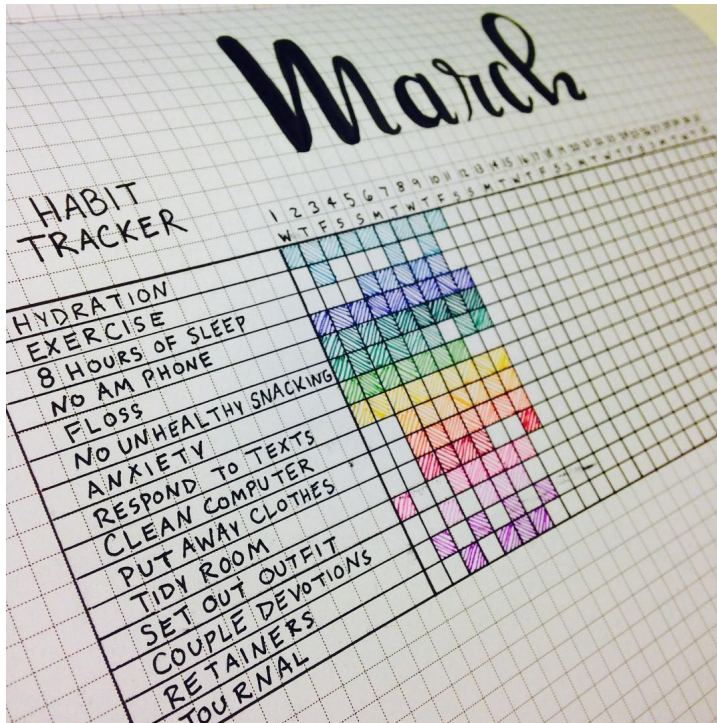 March
HABIT
TRACKER
1 2 3 4 5 6 7 8 9 10 11 12 13 14 15 16 17 18
W T F S S M T W T F S S M T W T F S S M T W T F
HYDRATION
EXERCISE
8 HOURS OF SLEEP
NO AM PHONE
FLOSS
NO UNHEALTHY SNACKING
ANXIETY
RESPOND TO TEXTS
CLEAN COMPUTER
PUT AWAY CLOTHES
TIDY ROOM
SET OUT OUTFIT
COUPLE DEVOTIONS
RETAINERS
JOURNAL